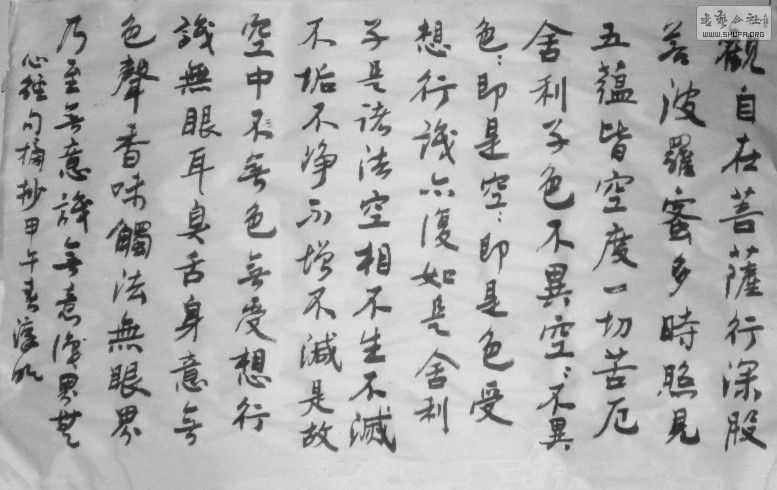 觀自在菩薩行深般
若波羅蜜多時照見
五蘊皆空度一切苦厄
舍利子色不異空〻不異
色〻即是空〻即是色受
想行識亦復如是舍利
子是諸法空相不生不滅
不垢不淨不增不減是故
空中不無色無受想行
識無眼耳臭舌身意無
色聲香味觸法無眼界
乃至無意識無意識界無
心經句摘抄甲午春
書藝公社
WWW.SHUFA.ORG